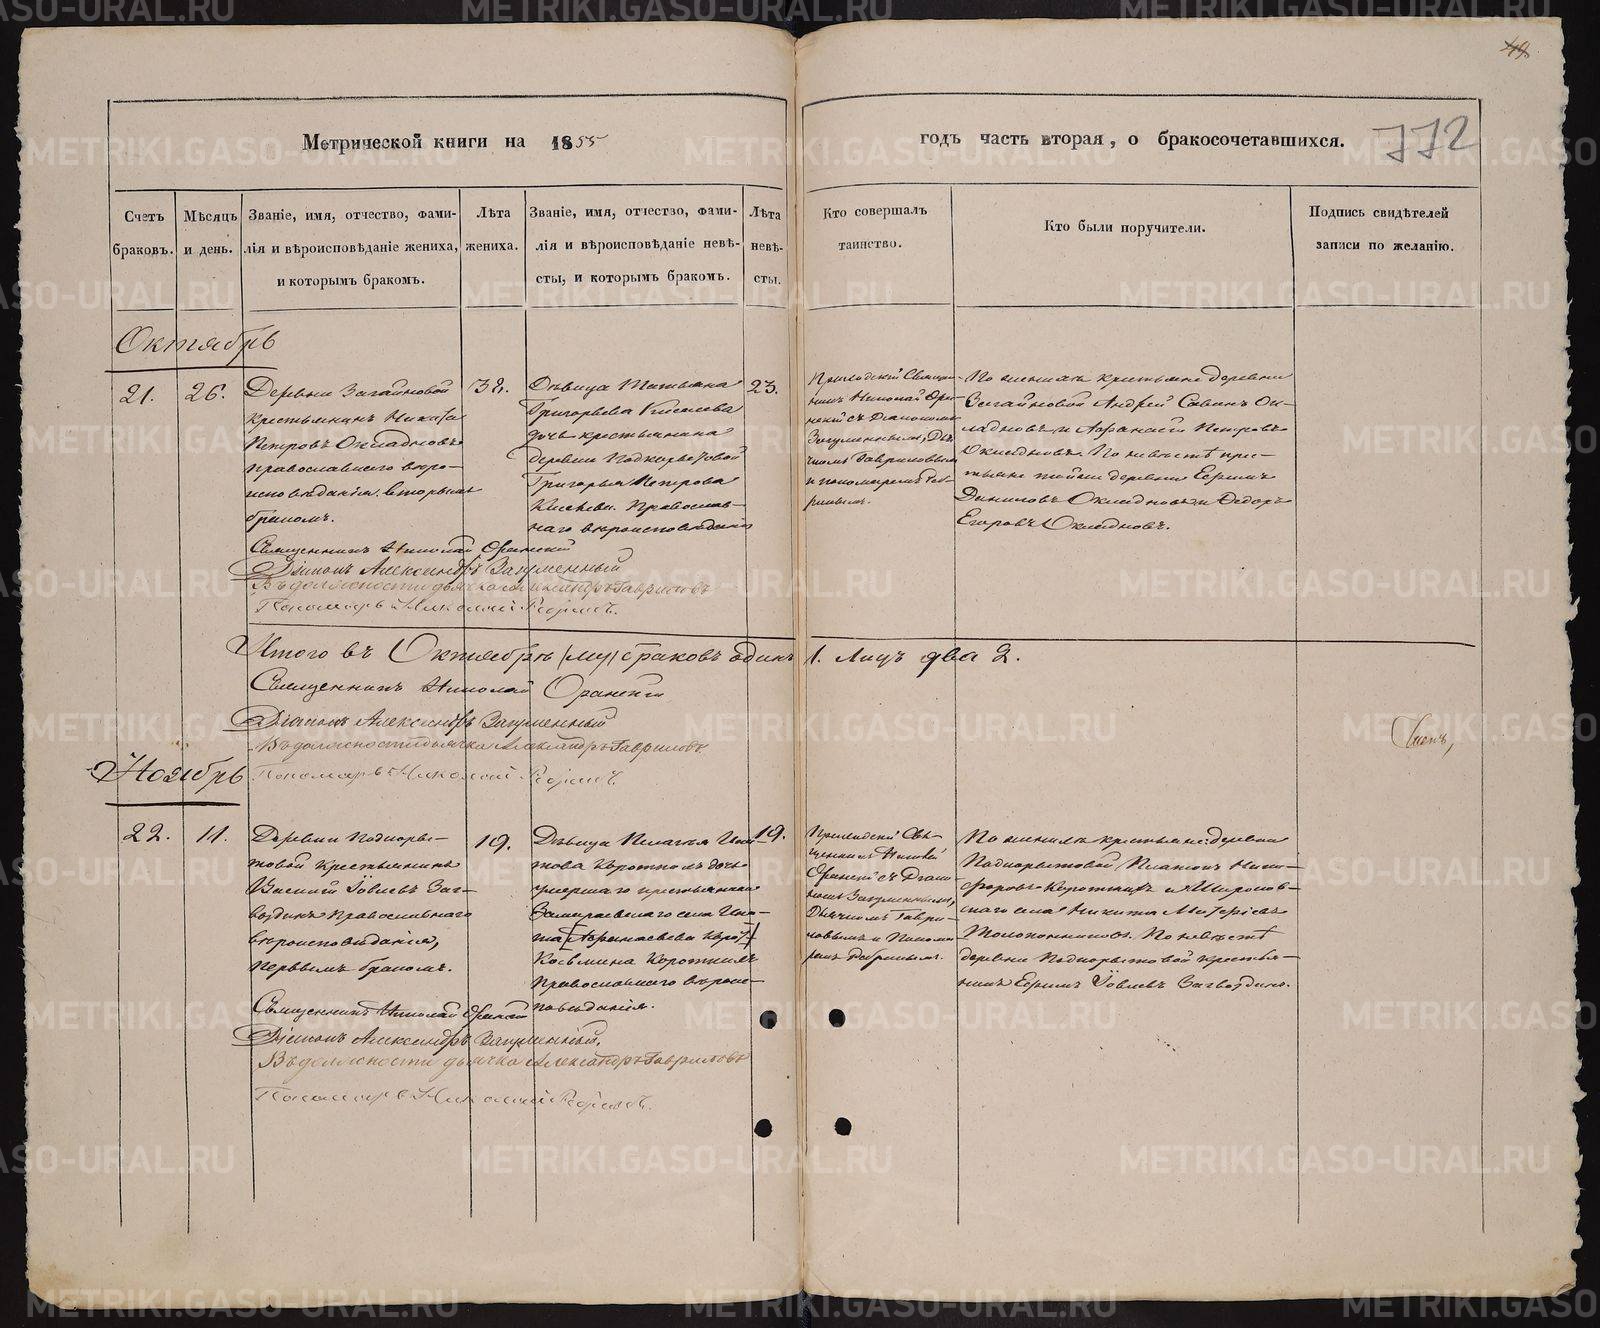 49.
Метрической книги на 1855
годъ часть вторая, о бракосочетавшихся.
772
Счетъ браковъ.
Мѣсяцъ и день.
Званіе, имя, отчество, фами-
лія и вѣроисповѣданіе жениха,
и которымъ бракомъ.
Лѣта жениха.
Званіе, имя, отчество, фами-
лія и вѣроисповѣданіе невѣ-
сты, и которымъ бракомъ.
Лѣта невѣ-
сты.
Кто совершалъ
таинство.
Кто были поручители.
Подпись свидѣтелей
записи по желанію.
Октябрь
21.
26.
Деревни Загайновой
крестьянинъ
Петровъ Окладновъ
православнаго вѣро-
исповѣданія, вторымъ
бракомъ.
32.
Дѣвица Татьяна
Григорьева Киселева
дочь крестьянина
деревни
Григорья Петрова
Киселева. Православ-
наго вѣроисповѣданія
23.
Приходскій Священ-
никъ Николай
съ Діакономъ
Загуменнымъ, Дья-
чкомъ Гавриловымъ
и пономаремъ
По женихѣ крестьяне деревни
Загайновой Андрей Савинъ Ок-
ладновъ и Афанасій Петровъ
Окладновъ. По невѣстѣ крес-
тьяне той же деревни Ефимъ
Даниловъ Окладновъ и Ѳедоръ
Егоровъ Окладновъ.
Священникъ Николай
Діаконъ Александръ Загуменный
Въ должности дьячка Александръ Гавриловъ
Пономарь Николай
Итого въ Октябрѣ (мц) браковъ одинъ 1. Лицъ два 2.
Священникъ Николай
Діаконъ Александръ Загуменный
Въ должности дьячка Александръ Гавриловъ
Пономарь Николай
Ноябрь
22.
11.
Деревни Подкоры-
товой Крестьянинъ
Василій Іовлевъ Заг-
воздинъ Православнаго
вѣроисповѣданія,
первымъ бракомъ.
19.
Дѣвица Пелагея Игна-
това Короткихъ дочь
умершаго крестьянина
села Игна-
та
Косьмина Короткихъ
Православнаго вѣроис-
повѣданія.
19.
Приходскій Свя-
щенникъ Николай
съ Діако-
номъ Загуменнымъ,
Дьячкомъ Гаври-
ловымъ и Понома-
ремъ
По женихѣ крестьяне деревни
Подкорытовой Платонъ Ники-
форовъ Короткихъ и Широков-
скаго села Никита
По невѣстѣ
деревни Подкорытовой крестья-
нинъ Ефимъ Іовлевъ Загвоздинъ.
Священникъ Николай
Діаконъ Александръ Загуменный,
Въ должности дьячка Александръ Гавриловъ
Пономарь Николай
METRIKI.GASO-URAL.RU